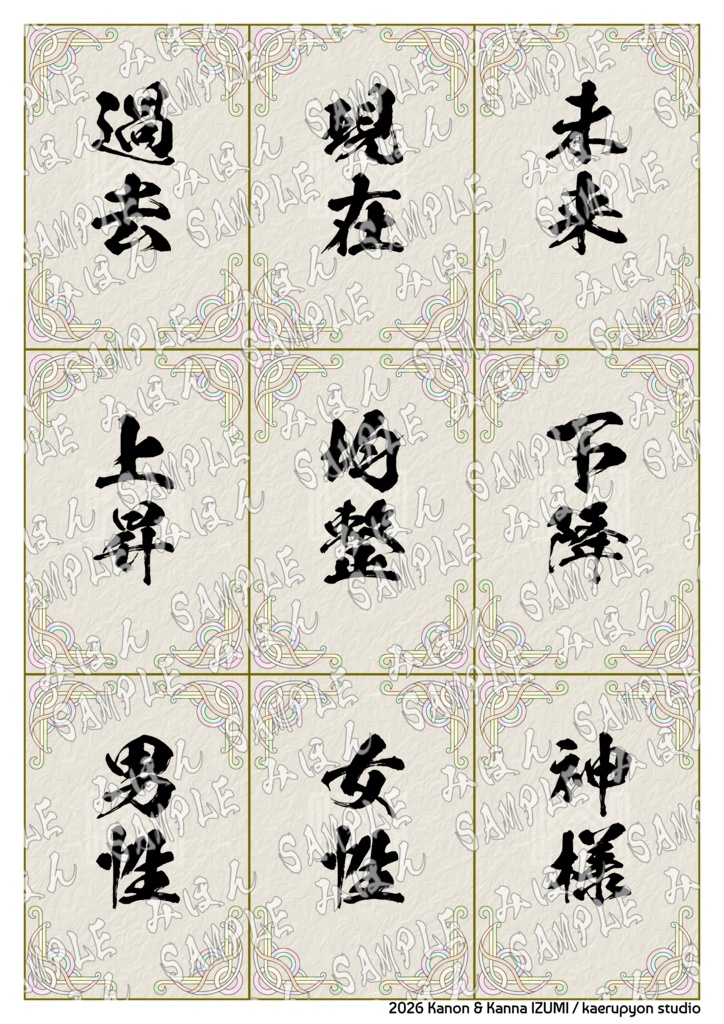 過去
現在
未来
上昇
均整
下降
男性
女性
神様
みほん
SAMPLE
2026 Kanon & Kanna IZUMI / kaerupyon studio